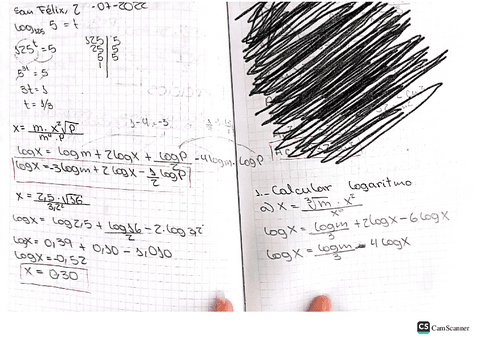 San Félix, 2 -07-2022
log₁₂₅ 5 = t
125ᵗ = 5
125 | 5
25 | 5
5 | 5
1
5³ᵗ = 5
3t = 1
t = 1/3
1-4=-3
x = m · x² √P / m⁴ · P
log x = log m + 2 log x + log P / 2 - 4 log m - log P
log x = -3 log m + 2 log x - 1/2 log P
x = 2,5 · √16 / 3,2²
log x = log 2,5 + log 16 / 2 - 2 · log 3,2
log x = 0,39 + 0,50 - 1,010
log x = -0,52
x = 0,30
1.- Calcular logaritmo
a) x = ³√m · x² / x⁶
log x = log m / 3 + 2 log x - 6 log x
log x = log m / 3 - 4 log x
CS CamScanner